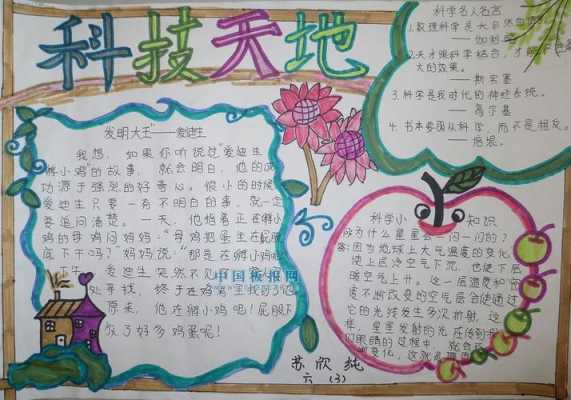 科技天地
发明大王"——爱迪生
我想，如果你听说过"爱迪生
孵小鸡"的故事，就会明白，他的成
功源于强烈的好奇心。很小的时候
爱迪生只要一有不明白的事，就一定
要追问清楚。一天，他指着正在孵小
鸡的母鸡问妈妈："母鸡把蛋坐在屁股
底下干吗？"妈妈说："那是在孵小鸡呢
爱迪生突然不见
处寻找，终于在鸡窝里找到了他
原来，他在孵小鸡呢！屁股下
放了好多鸡蛋呢！
中国板报网
科学名人名言
1.数理科学是大自然的
——伽利略
2.天才跟科学结合，才能
大的效果。
——斯宾塞
3.科学是我时代的神经系统。
——高尔基
4.书本要服从科学，而不是相反。
——培根。
科学小知识
为什么星星会一闪一闪的？
答：因为地球上大气温度的变化
使上层冷空气下沉，也使下层
暖空气上升。这一层温度和密
度不断改变的空气层会使通过
它的光线发生多次折射，这
样，星星发射的光在传到
们眼睛的过程中，就会
变化，这就
苏欣纯
六（3）